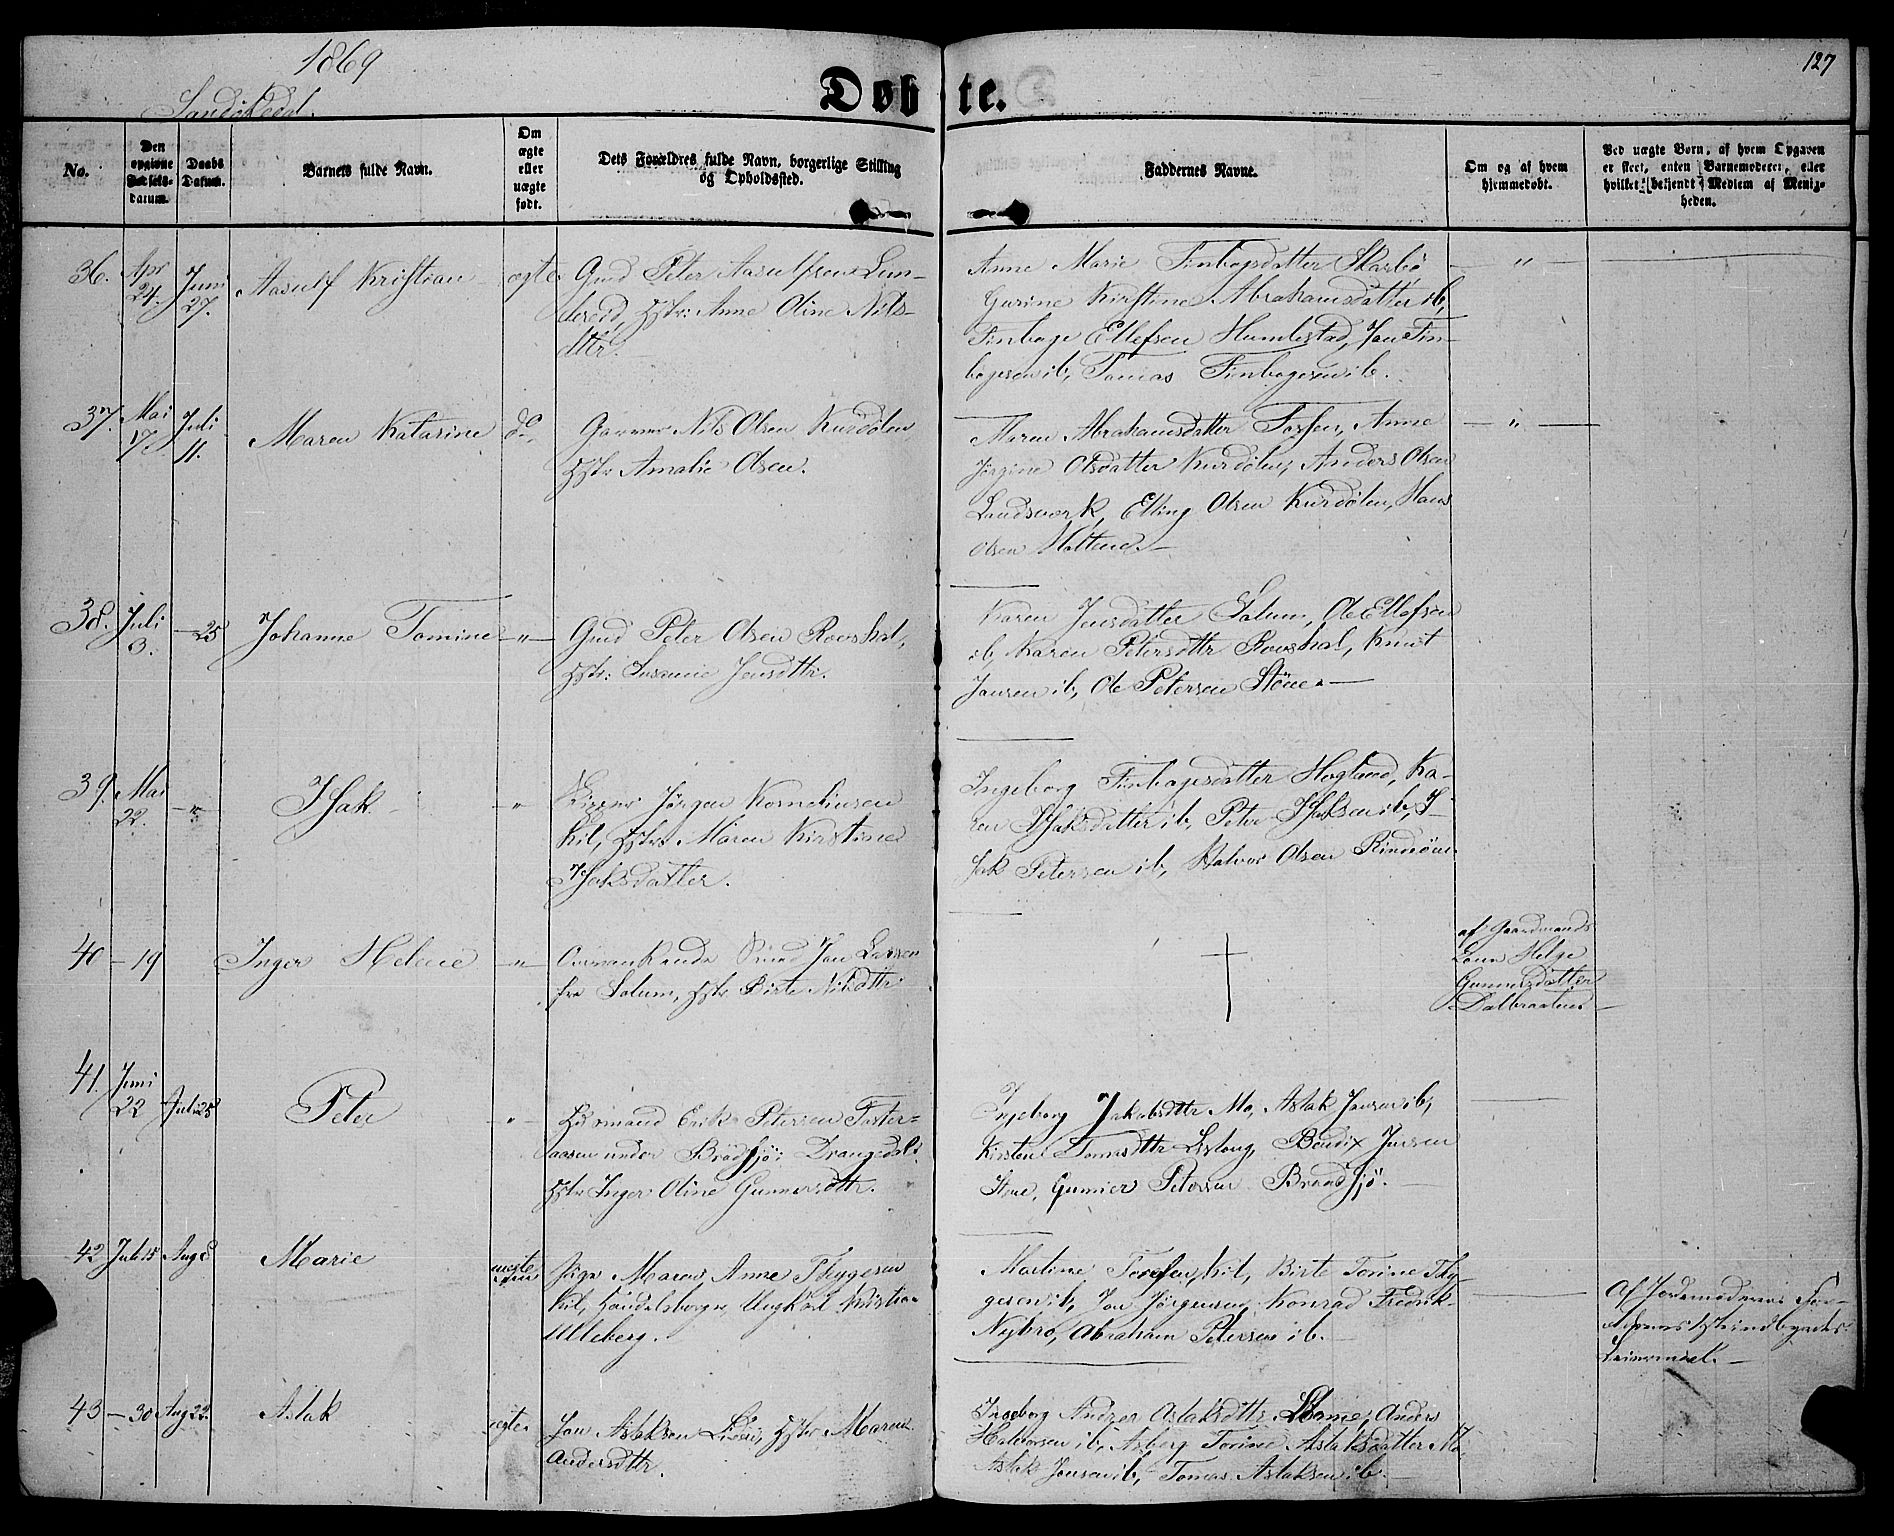 1869
127
Døbte.
Sandøkedal.
No.
Den opgivne Fødsels-datum.
Daabs Datum.
Barnets fulde Navn.
Om ægte eller uægte født.
Dets Forældres fulde Navn, borgerlige Stilling og Opholdssted.
Faddernes Navne.
Om og af hvem hjemmedøbt.
Ved uægte Børn, af hvem Opgaven er skeet, enten Barnemoderen, eller hvilket bekjendt Medlem af Menigheden.
36. Apr 24. Juni 27. Aasulf Kristian ægte
Gmd Peter Aasulfsen Lun-
dereid, Hstr: Anne Oline Nils-
dttr.
Anne Marie Finbogsdatter Skarbø
Gurine Kirstine Abrahamsdatter ib,
Finboge Ellefsen Humlestad, Jon Fin-
bogesen ib, Tomas Finbogesen ib.
— " —
37. Mai 17. Juli 11. Maren Katarine do
Garver Nils Olsen Kurdølen
Hstr Amalie Olsen.
Maren Abrahamsdatter Fossen, Anne
Jørgine Olsdatter Kurdølen, Anders Olsen
Landsværk, Elling Olsen Kurdølen, Hans
Olsen Holtene. —
— " —
38. Juli 3. — 25 Johanne Tomine — " —
Gmd Peter Olsen Rovshol,
Hstr: Susanne Jensdttr.
Karen Jensdatter Salum, Ole Ellefsen
ib, Karen Petersdttr Rovshol, Knut
Jensen ib, Ole Petersen Støne. —
39. Mai 22. — " — Isak. "
Skipper Jørgen Korneliusen
Kil, Hstr: Maren Kirstine
Isaksdatter.
Ingeborg Finbogsdatter Hogland, Ka-
ren Isaksdatter ib, Peter Isaksen ib, I-
sak Petersen ib, Halvor Olsen
40 — 19 Inger Helene — " —
Jon Larsen
fra Solum, Hstr. Birte Nilsdttr
†
af Gaardmands-
kone Helge
Gunnersdatter
Dalbraaten —
41. Juni 22 Juli 25 Peter "
Husmand Erik Petersen Foster-
aasen under Brødsjø i Drangedal.
Hstr Inger Oline Gunnersdttr.
Ingeborg Jakobsdttr Mo, Aslak Jensen ib,
Kirsten Tomasdttr Besteng, Bendix Jensen
Stene, Gunner Petersen Brødsjø. —
42 Juli 15 Aug 8 Marie uægte
Pige Maren Anne Thygesen
Kil, Handelsborger, Ungkarl Kristian
Ulleberg.
Martine Torsen, Kil, Birte Torine Thy-
gesen ib, Jon Jørgensen, Konrad Fredrik
Nybro, Abraham Petersen ib. —
Af Jordemoderen
43 — 30 Aug 22. Aslak ægte
Jon Aslaksen Hstr Maren
Andersdttr.
Ingeborg Andrea Aslaksdttr Støme, Anders
Halvorsen ib, Asberg Torine Aslaksdatter Mo,
Aslak Jensen ib, Tomas Aslaksen ib. —